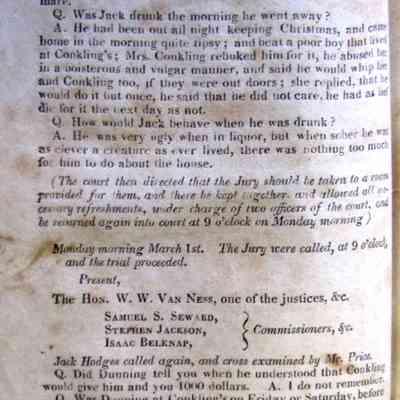 mare.
Q. Was Jack drunk the morning he went away?
A. He had been out all night keeping Christmas, and came
home in the morning quite tipsy; and beat a poor boy that lives
at Conkling's; Mrs. Conkling rebuked him for it, he abused her
in a boisterous and vulgar manner, and said he would whip her
and Conkling too, if they were out doors; she replied, that he
would do it but once, he said that he did not care, he had as lief
die for it the next day as not.
Q. How would Jack behave when he was drunk?
A. He was very ugly when in liquor, but when sober he was
as clever a creature as ever lived, there was nothing too much
for him to do about the house.
(The court then directed that the Jury should be taken to a room
provided for them, and there be kept together, and allowed all ne-
cessary refreshments, under charge of two officers of the court, and
be returned again into court at 9 o'clock on Monday morning)
Monday morning March 1st. The Jury were called, at 9 o'clock,
and the trial proceeded.
Present,
The Hon. W. W. Van Ness, one of the justices, &c.
Samuel S. Seward,
Stephen Jackson,
Isaac Belknap,
Commissioners, &c.
Jack Hodges called again, and cross examined by Mr. Price.
Q. Did Dunning tell you when he understood that Conkling
would give him and you 1000 dollars. A. I do not remember.
Q. Was Dunning at Conkling's on Friday or Saturday, before